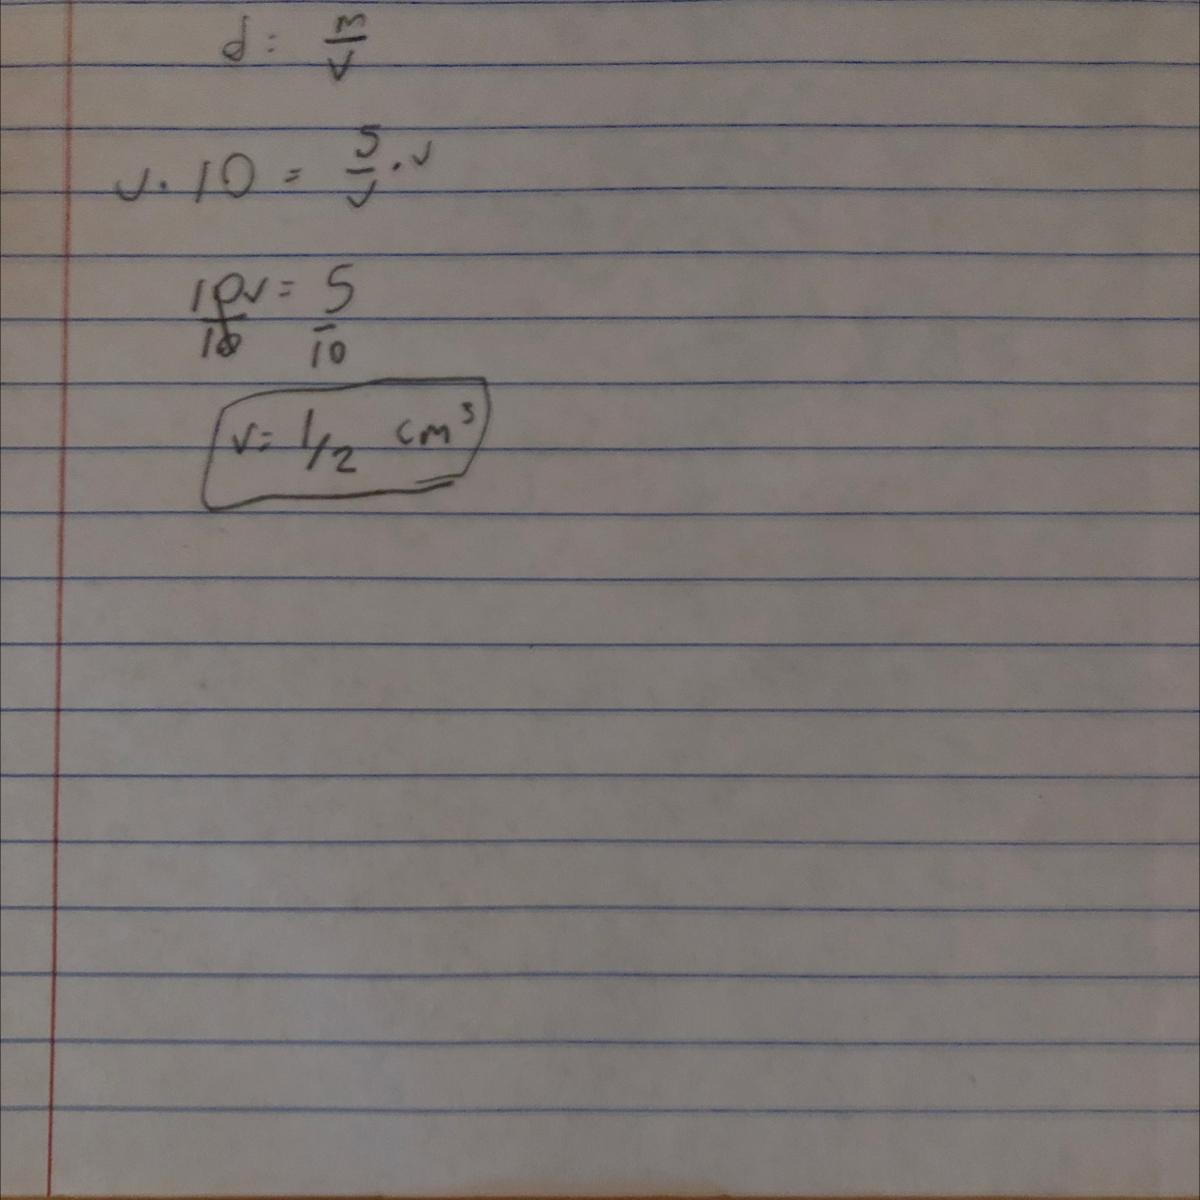 d = m/v
v · 10 = 5/v · v
10v/10 = 5/10
v = 1/2 cm³